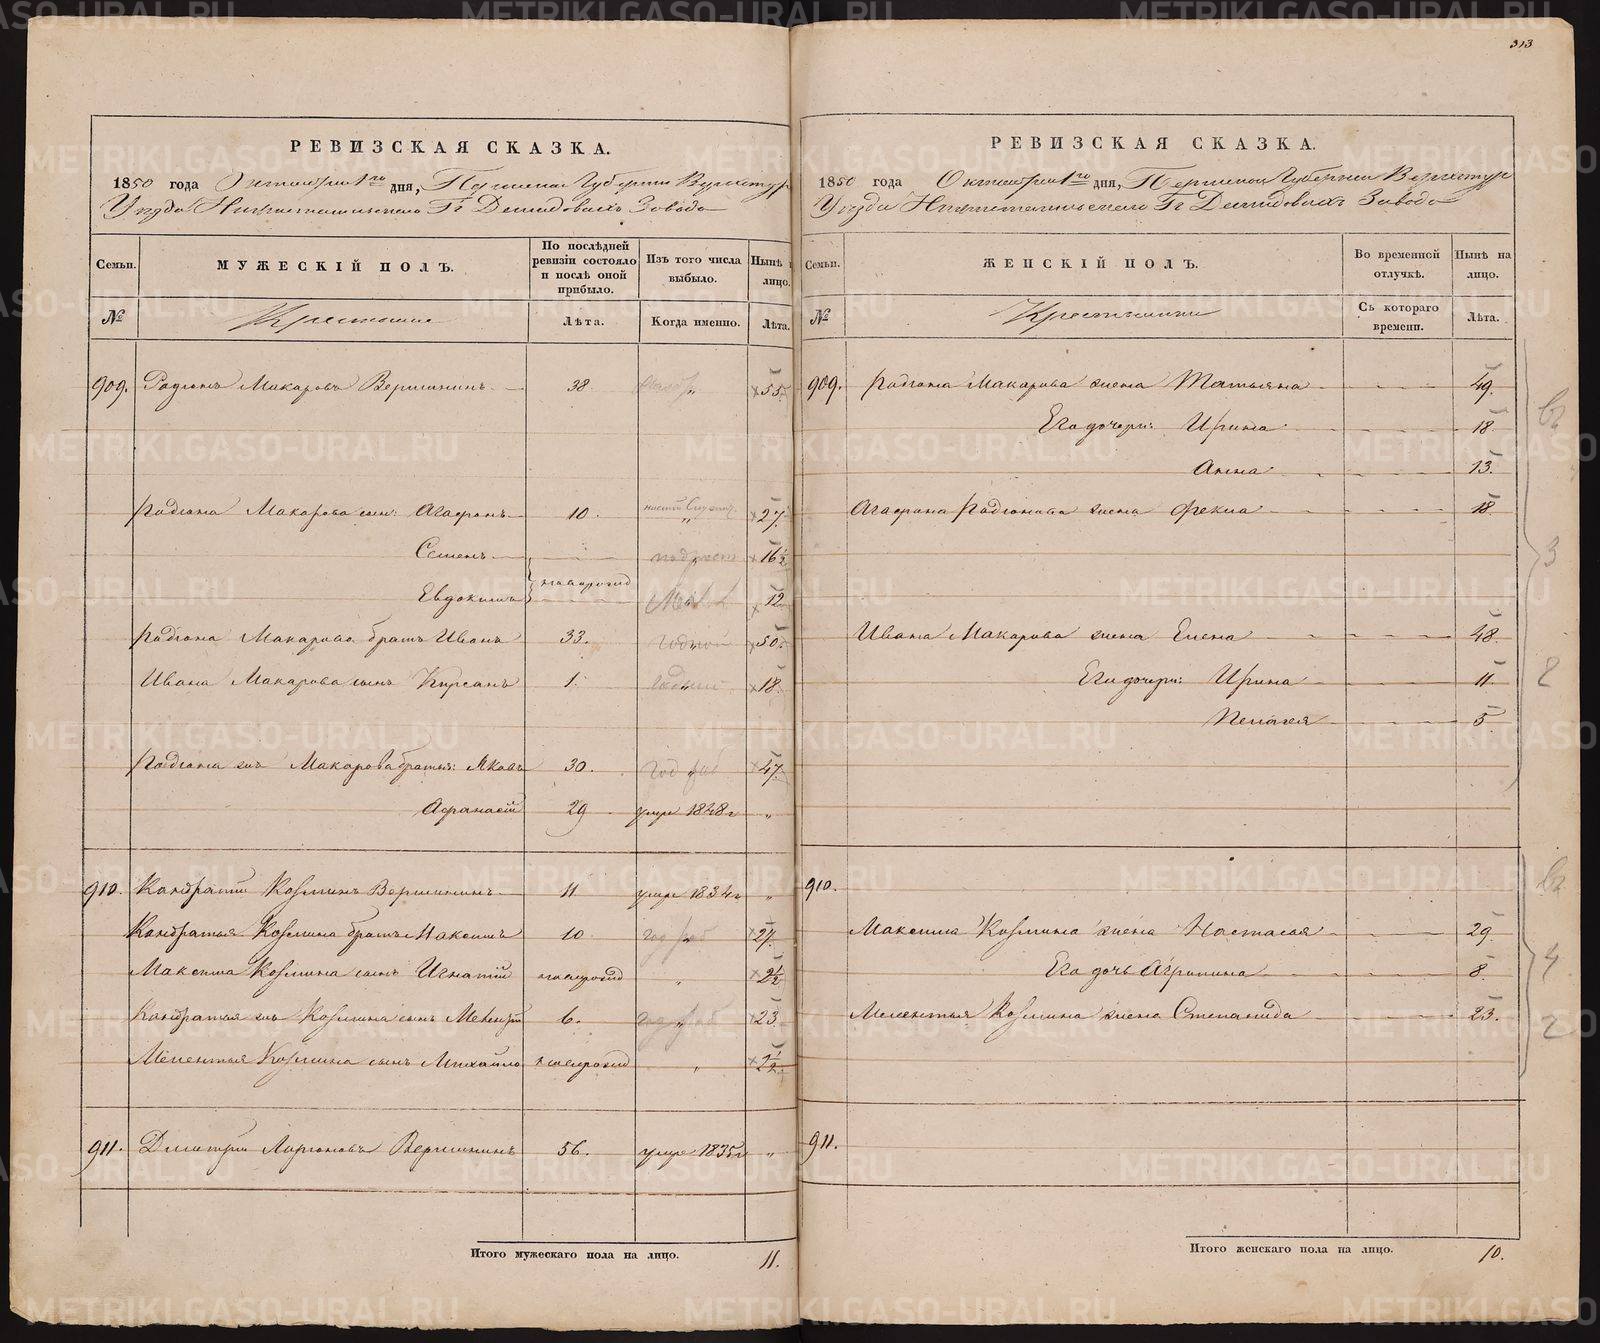 313
РЕВИЗСКАЯ СКАЗКА.
1850 года Октября 1го дня, Пермской Губернии Верхотур
Уезда Нижнетагильскаго Гг Демидовыхъ Завода
Семьи.
МУЖЕСКІЙ ПОЛЪ.
По послѣдней ревизіи состояло и послѣ оной прибыло.
Изъ того числа выбыло.
Нынѣ на лицо.
№
Крестьяне
Лѣта.
Когда именно.
Лѣта.
909. Радіонъ Макаровъ Вершининъ 38. " 55
Радіона Макарова сын: Агафонъ 10. " 27
Семенъ 16½
Евдокимъ новорожд 12
Радіона Макарова братъ Иванъ 33. годной 50
Ивана Макарова сынъ Кирсанъ 1. годный 18
Радіона жъ Макарова братья: Яковъ 30. год раб 47
Афанасій 29 умре 1848 г "
910. Кондратій Козминъ Вершининъ 11 умре 1834 г "
Кондратья Козмина братъ Максимъ 10 год раб 27
Максима Козмина сынъ Игнатій новорожд " 2½
Кондратья жъ Козмина сынъ Мелентій 6. год раб 23
Мелентья Козмина сынъ Михайло новорожд " 2½
911. Дмитрій Ларіоновъ Вершининъ 56. умре 1835 г "
Итого мужескаго пола на лицо. 11.
РЕВИЗСКАЯ СКАЗКА.
1850 года Октября 1го дня, Пермской Губернии Верхотур
Уезда Нижнетагильскаго Гг Демидовыхъ Завода
Семьи.
ЖЕНСКІЙ ПОЛЪ.
Во временной отлучкѣ.
Нынѣ на лицо.
№
Крестьянки
Съ котораго времени.
Лѣта.
909. Радіона Макарова жена Татьяна 49.
Его дочери: Ирина 18
Анна 13.
Агафона Радіонова жена Фекла 18.
Ивана Макарова жена Елена 48
Его дочери: Ирина 11
Пелагея 5
910.
Максима Козмина жена Настасья 29
Его дочь Агрипина 8
Мелентья Козмина жена Степанида 23.
911.
Итого женскаго пола на лицо. 10.
3
2
4
2
METRIKI.GASO-URAL.RU